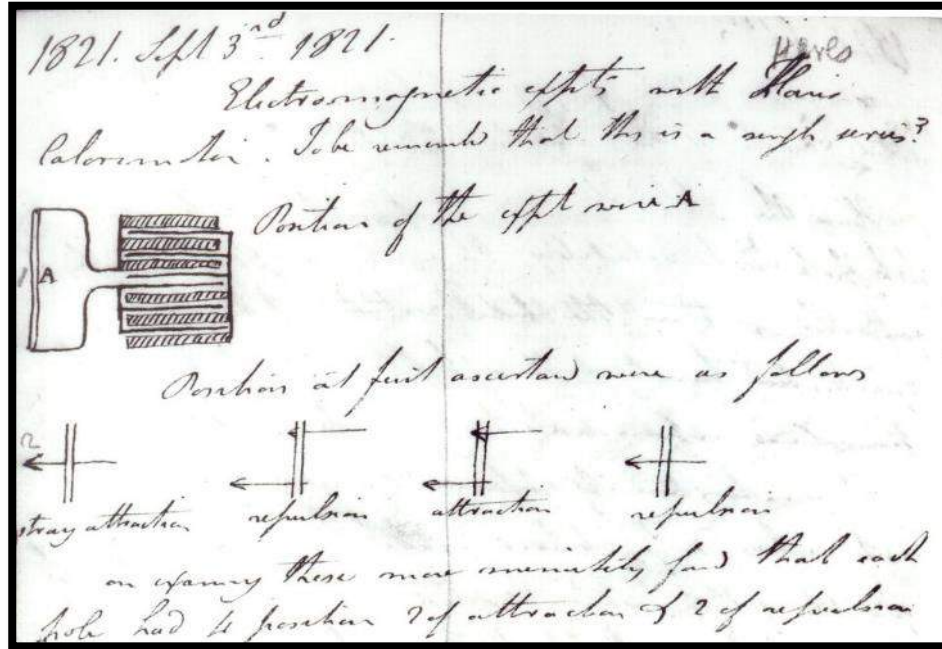 1821. Sept 3rd. 1821.
Hares
Electromagnetic expts with Hares
Calorimotor. To be rememb that this is a single series?
Position of the expt wire A
1 A
Positions at first ascertaind were as follows
2
strong attraction repulsion attraction repulsion
on examg these more minutely found that each
pole had 4 position 2 of attraction & 2 of repulsion